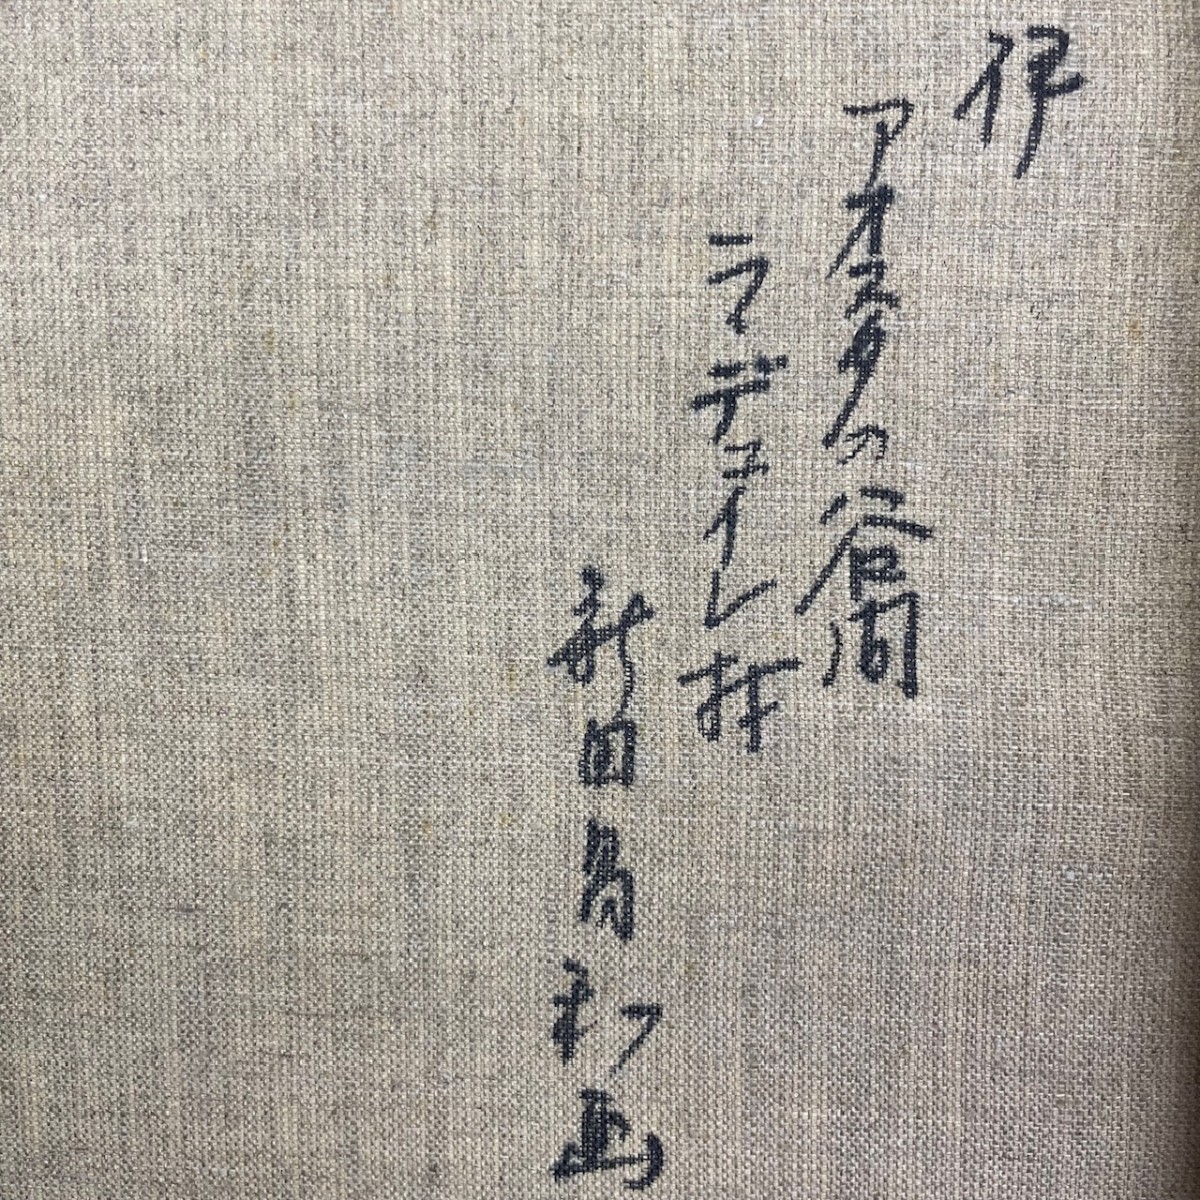 伊
アオスタの谷間
ラデュイレ村
新田 和画